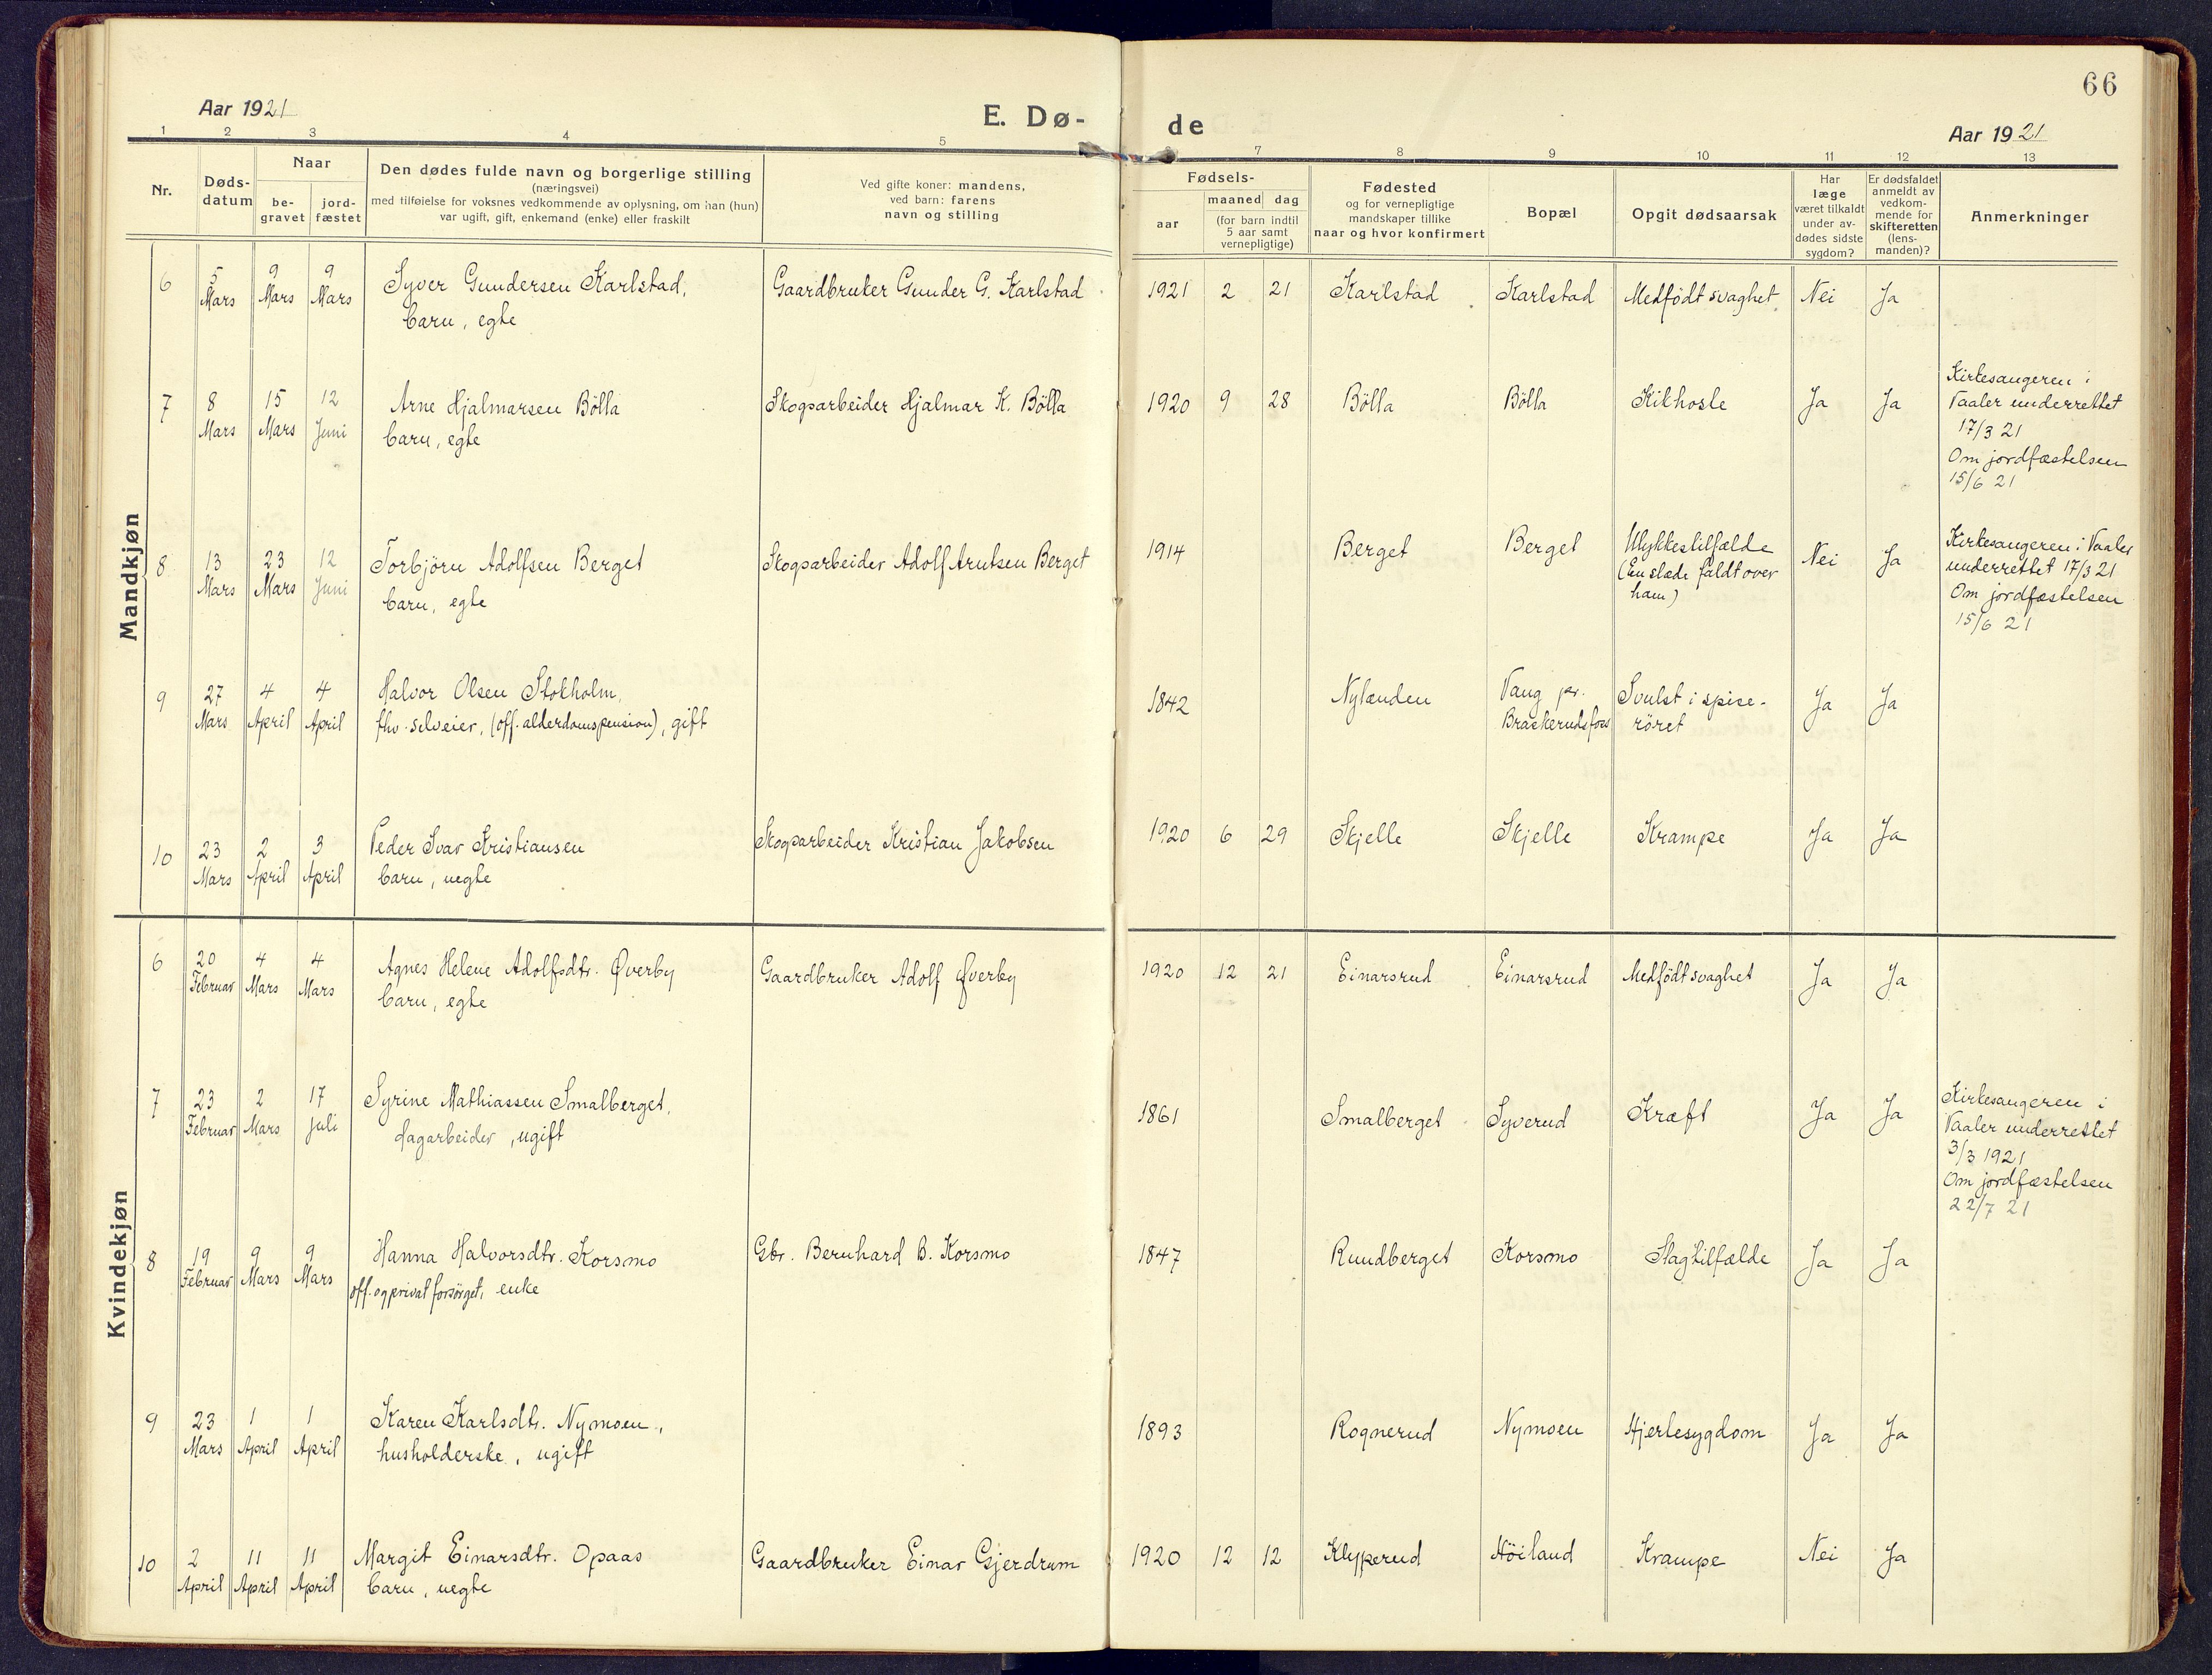 66
Aar 1921
E. Dø-
de
Aar 1921
1 2 3 4 5 6 7 8 9 10 11 12 13
Nr.
Døds-
datum
Naar
be-
gravet
jord-
fæstet
Den dødes fulde navn og borgerlige stilling
(næringsvei)
med tilføielse for voksnes vedkommende av oplysning, om han (hun)
var ugift, gift, enkemand (enke) eller fraskilt
Ved gifte koner: mandens,
ved barn: farens
navn og stilling
Fødsels-
aar
maaned dag
(for barn indtil
5 aar samt
vernepligtige)
Fødested
og for vernepligtige
mandskaper tillike
naar og hvor konfirmert
Bopæl
Opgit dødsaarsak
Har
læge
været tilkaldt
under av-
dødes sidste
sygdom?
Er dødsfaldet
anmeldt av
vedkom-
mende for
skifteretten
(lens-
manden)?
Anmerkninger
Mandkjøn
6 5 9 9 Syver Gundersen Karlstad, Gaardbruker Gunder G. Karlstad 1921 2 21 Karlstad Karlstad Medfödt svaghet Nei Ja
Mars Mars Mars barn, egte
7 8 15 12 Arne Hjalmarsen Bölla Skogsarbeider Hjalmar K. Bölla 1920 9 28 Bölla Bölla Kikhoste Ja Ja
Mars Mars Juni barn, egte
Kirkesangeren i
Vaaler underrettet
17/3 21
Om jordfæstelsen
15/6 21
8 13 23 12 Torbjörn Adolfsen Berget Skogsarbeider Adolf Arntsen Berget 1914 Berget Berget Ulykkestilfælde Nei Ja
Mars Mars Juni barn, egte
(En slæde faldt over
ham)
Kirkesangeren i Vaaler
underrettet 17/3 21
Om jordfæstelsen
15/6 21
9 27 4 4 Halvor Olsen Stokholm, 1842 Nylænden Vang pr. Svulst i spise- Ja Ja
Mars April April fhv. selveier, (off. alderdomspension), gift Braskerudsfoss röret
10 23 2 3 Peder Ivar Kristiansen Skogsarbeider Kristian Jakobsen 1920 6 29 Skjelle Skjelle Krampe Ja Ja
Mars April April barn, uegte
Kvindekjøn
6 20 4 4 Agnes Helene Adolfsdtr. Øverby Gaardbruker Adolf Øverby 1920 12 21 Einarsrud Einarsrud Medfödt svaghet Ja Ja
Februar Mars Mars barn, egte
7 23 2 17 Syrine Mathiassen Smalberget, 1861 Smalberget Syverud Kræft Ja Ja
Februar Mars Juli dagarbeider, ugift
Kirkesangeren i
Vaaler underrettet
3/3 1921
Om jordfæstelsen
22/7 21
8 19 9 9 Hanna Halvorsdtr. Korsmo Gbr. Bernhard B. Korsmo 1847 Rundberget Korsmo Slagtilfælde Ja Ja
Februar Mars Mars off. og privat forsörget, enke
9 23 1 1 Karen Karlsdtr. Nymoen, 1893 Rognerud Nymoen Hjertesygdom Ja Ja
Mars April April husholderske, ugift
10 2 11 11 Margit Einarsdtr. Opaas Gaardbruker Einar Gjerdrum 1920 12 12 Klypperud Höiland Krampe Nei Ja
April April April barn, uegte